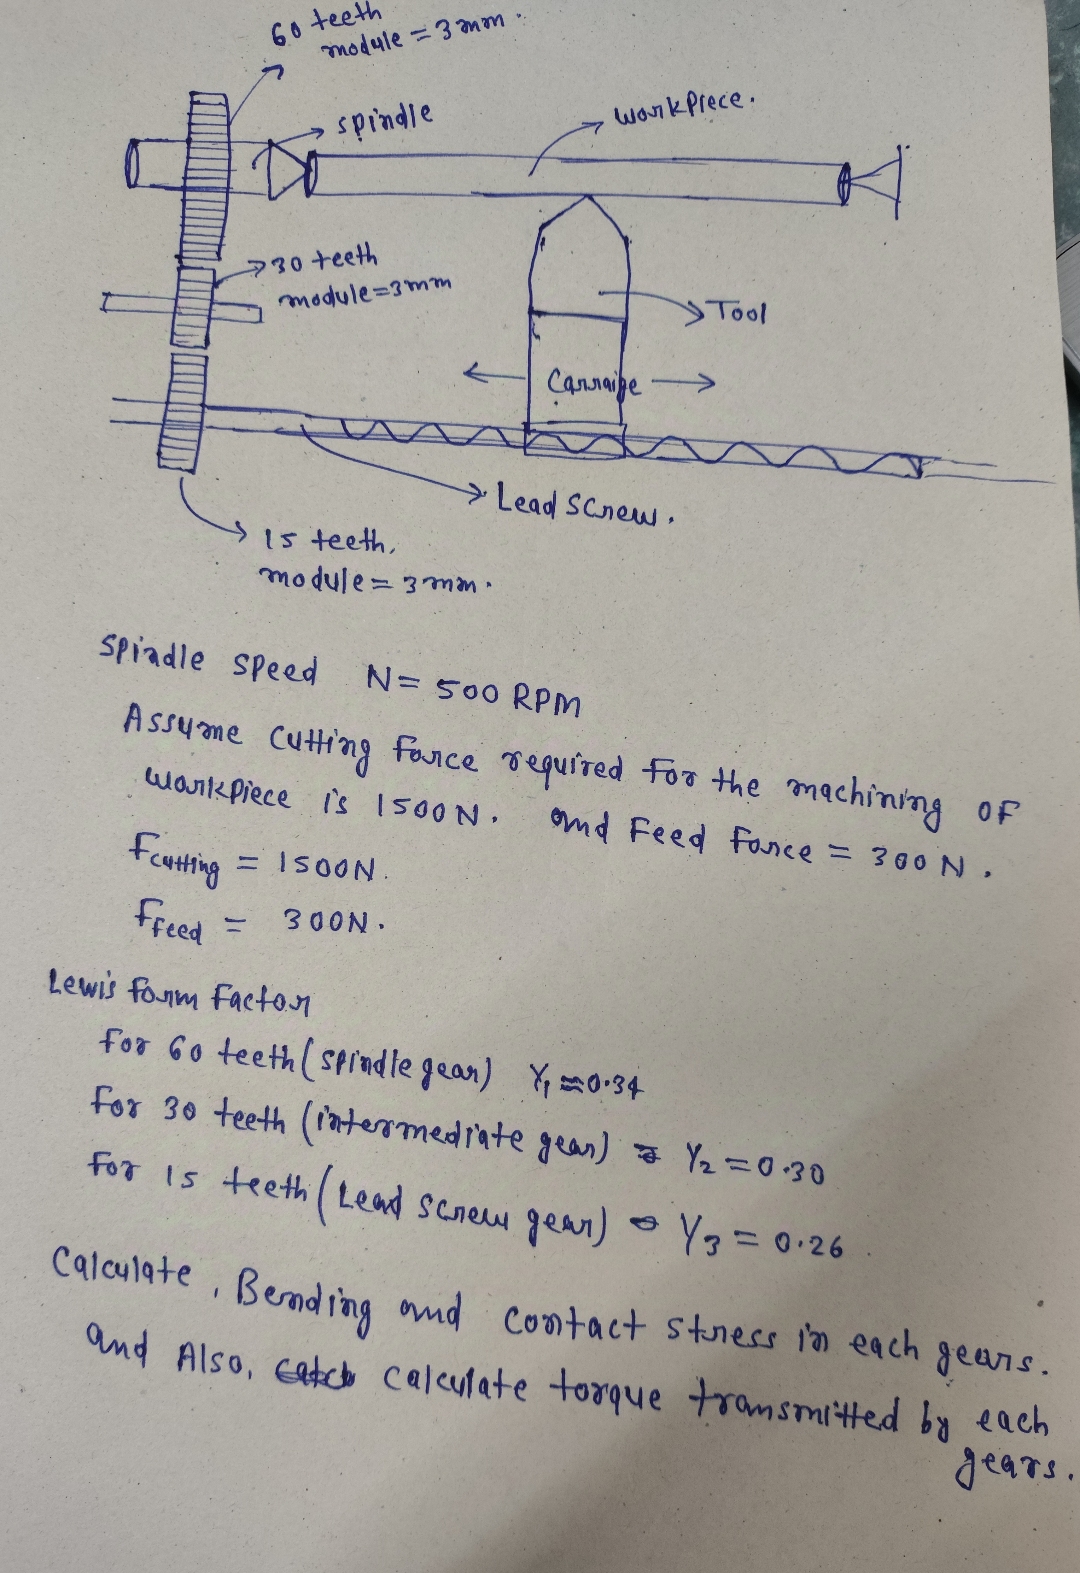 60 teeth
module = 3 mm.
spindle
workpiece.
30 teeth
module=3mm
Tool
Carraige
Lead screw.
15 teeth,
module = 3 mm.
Spindle speed N= 500 RPM
Assume cutting force required for the machining of
workpiece is 1500N. and Feed force = 300 N.
Fcutting = 1500N.
Ffeed = 300N.
Lewis form factor
for 60 teeth (spindle gear) Y1 = 0.34
for 30 teeth (intermediate gear) Y2 = 0.30
for 15 teeth (Lead screw gear) Y3 = 0.26
Calculate, Bending and contact stress in each gears.
and Also, calculate torque transmitted by each
gears.